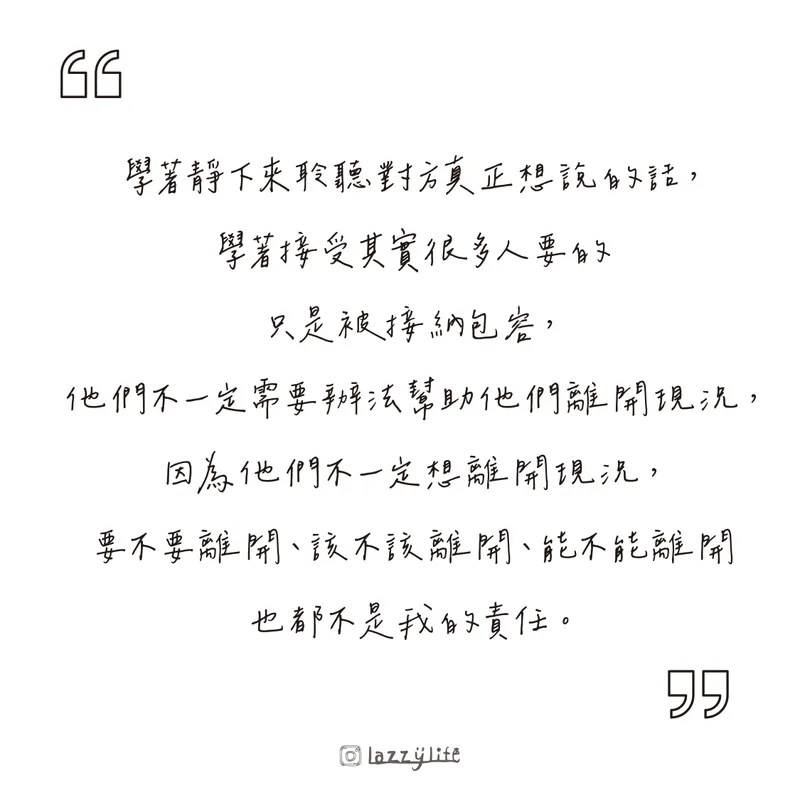 學著靜下來聆聽對方真正想說的話，
學著接受其實很多人要的
只是被接納包容，
他們不一定需要辦法幫助他們離開現況，
因為他們不一定想離開現況，
要不要離開、該不該離開、能不能離開
也都不是我的責任。
lazzylife